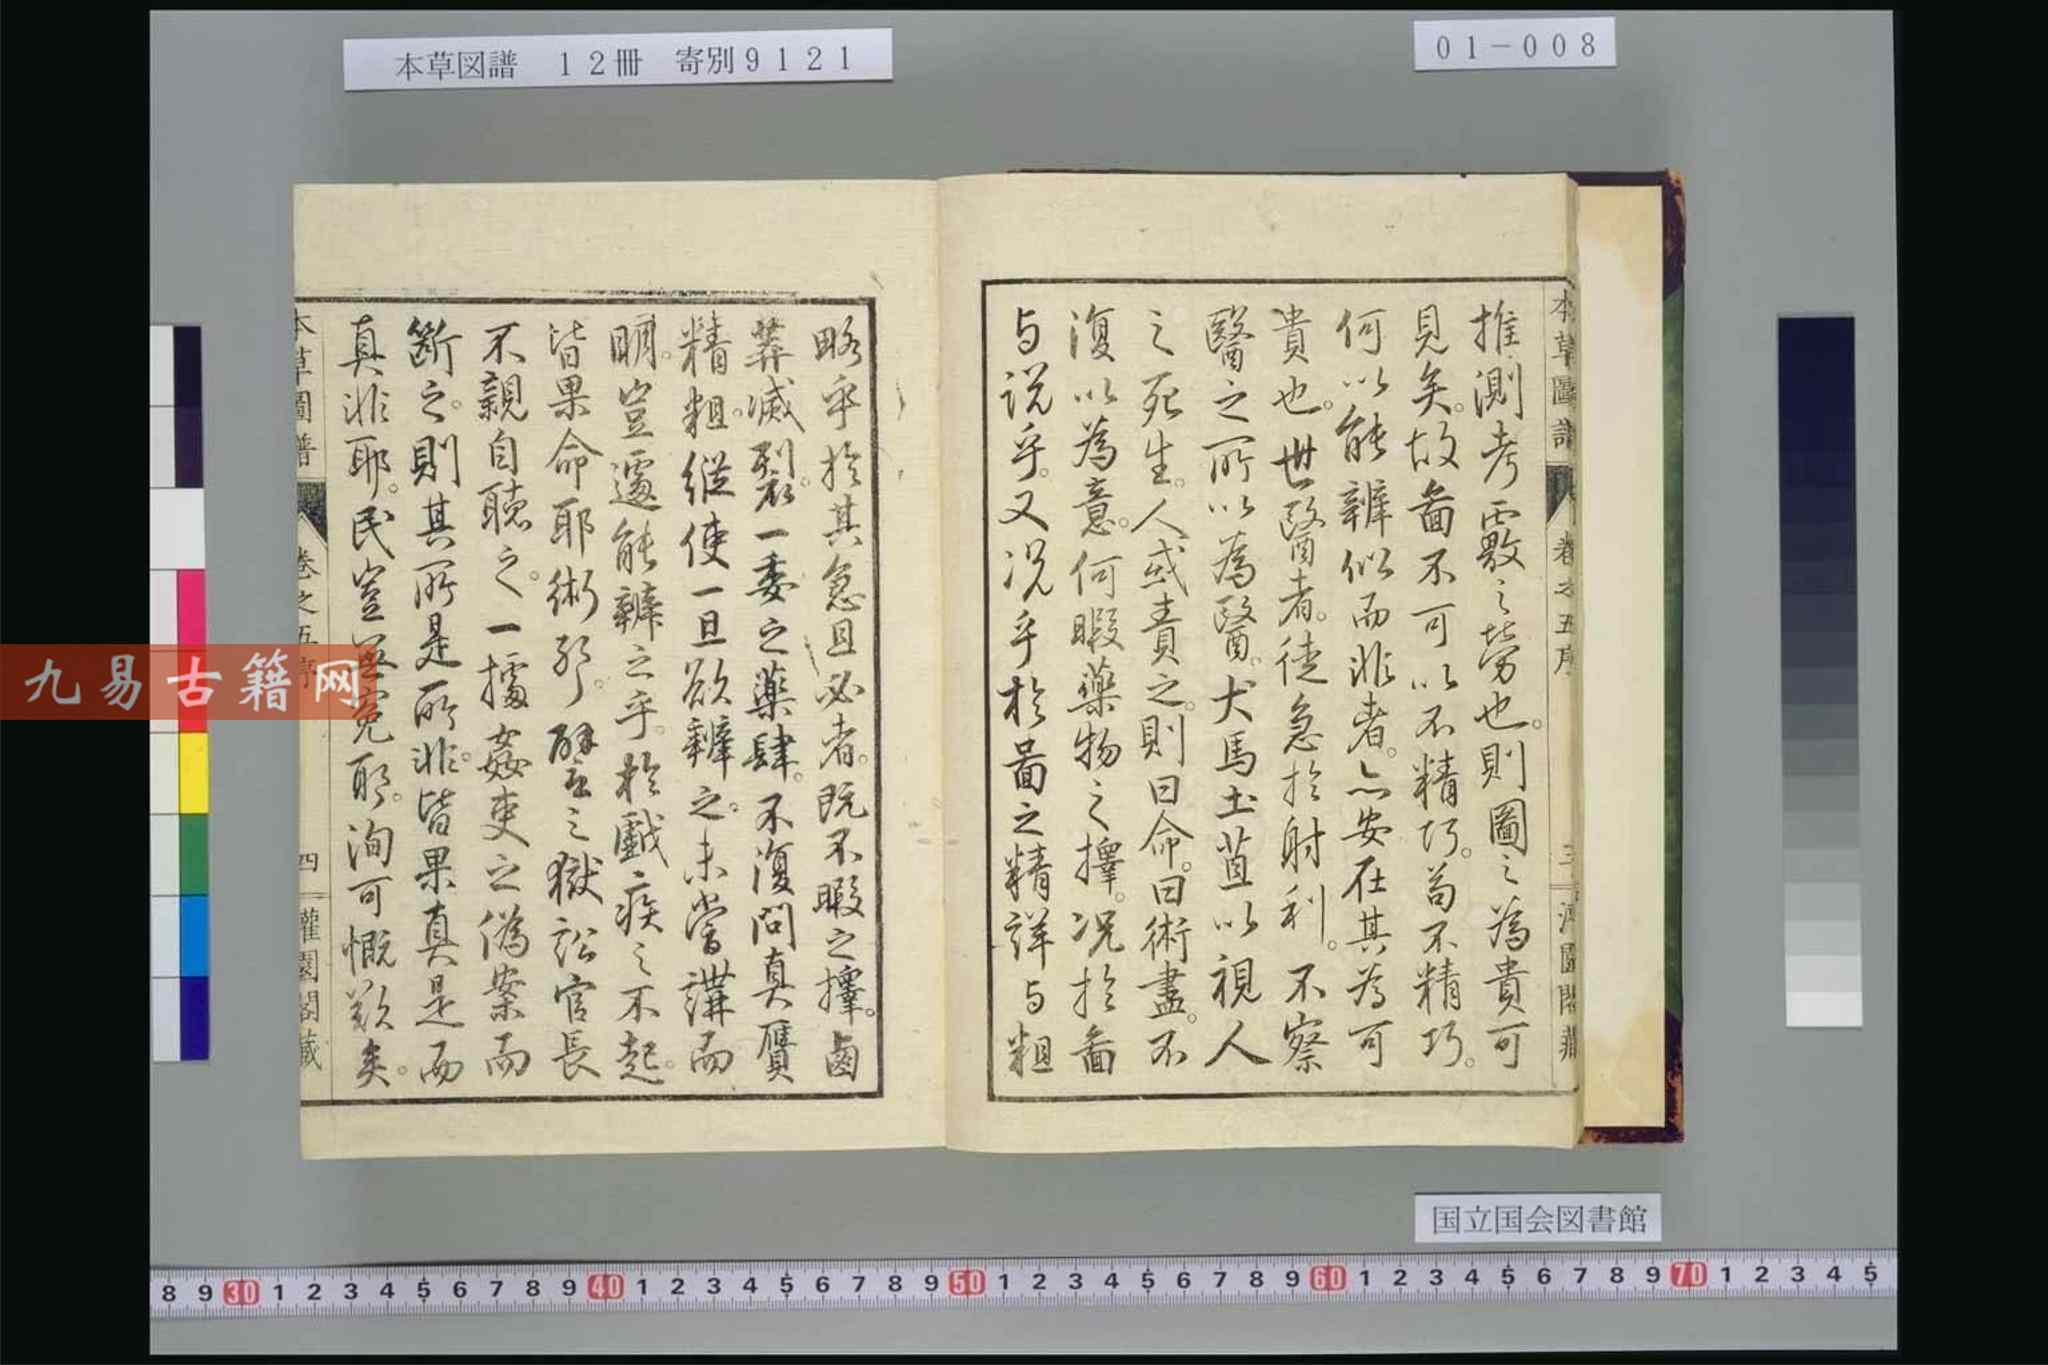 本草図譜　１２冊　寄別９１２１
０１－００８
本草圖譜
卷之五序
推測考覈之勞也。則圖之為貴可
見矣。故啚不可以不精巧。苟不精巧。
何以能辨似而非者。亦安在其為可
貴也。世醫者。徒急於射利。不察
醫之所以為醫。犬馬土苴以視人
之死生。人或責之。則曰命。曰術盡。不
復以為意。何暇藥物之擇。况於啚
与説乎。又况乎於啚之精詳与粗
略乎於其急且必者。既不暇之擇。鹵
莽滅裂。一委之藥肆。不復問真贋
精粗。縱使一旦欲辨之。未嘗講而
明。豈遽能辨之乎。於戲疾之不起。
皆果命耶術耶。譬之獄訟官長
不親自聴之。一據姦吏之偽案而
斷之。則其所是所非。皆果真是而
真非耶。民豈無寃耶。洵可慨歎矣。
本草圖譜
卷之五序
四
灌園閣藏
九易古籍网
国立国会図書館
8 9 30 1 2 3 4 5 6 7 8 9 40 1 2 3 4 5 6 7 8 9 50 1 2 3 4 5 6 7 8 9 60 1 2 3 4 5 6 7 8 9 70 1 2 3 4 5